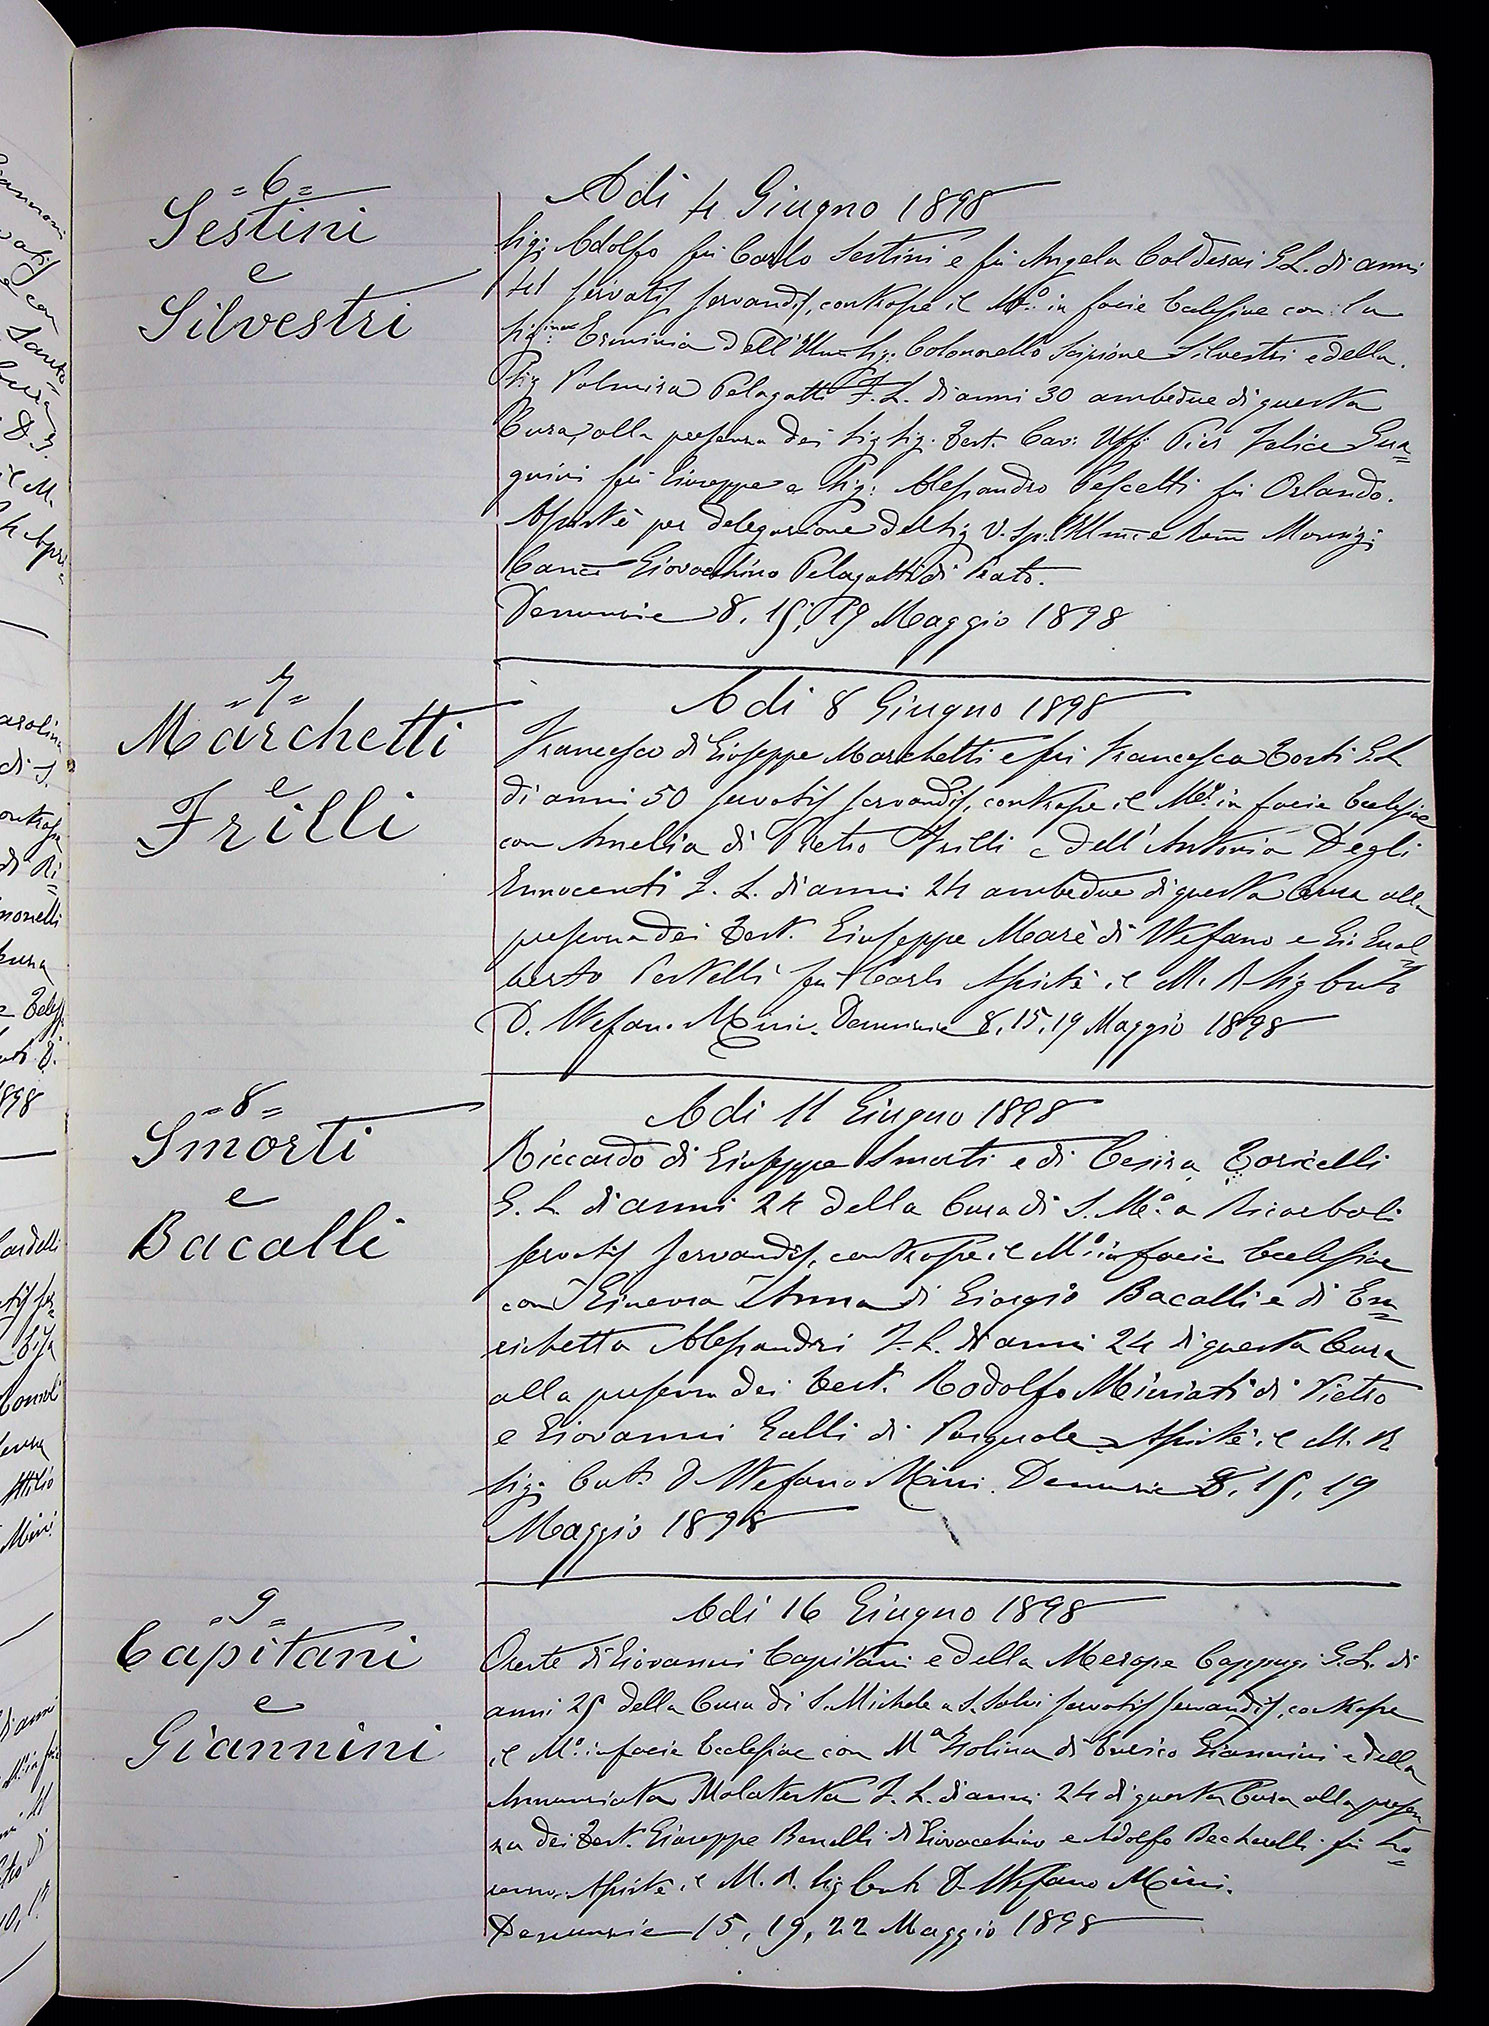 =6=
Sestini
e
Silvestri
Adi 4 Giugno 1898
Sig: Adolfo fù Carlo Sestini e fù Angela Calderai G.L. di anni
41 servatis servandis, contrasse il Mº: in facie Ecclesiae con la
Sig:ina Erminia dell'Ill.mo Sig: Colonnello Scipione Silvestri e della
Sig. Palmira Pelagatti F.L. di anni 30 ambedue di questa
Cura, alla presenza dei Sig Sig. Test. Cav: Uff: Pier Felice
fù Giuseppe e Sig: Alessandro Pescetti fù Orlando.
Assistè per delegazione del Sig V. Sp. Illm̅ e Rem̅ Monsig:
Can̅ce Giovacchino Pelagatti di Prato.
Denunzie 8, 15, 19 Maggio 1898
=7=
Marchetti
e
Frilli
Adi 8 Giugno 1898
Francesco di Giuseppe Marchetti e fù Francesca Torti G.L
di anni 50 servatis servandis, contrasse il Mº: in facie Ecclesiae
con Amelia di Pietro Frilli e dell'Antonia Degli
Innocenti F. L. di anni 24 ambedue di questa Cura alla
presenza dei Test. Giuseppe Marè di Stefano e Gi: Gual=
berto fù Carlo Assistè il M. R Sig Curto
D. Stefano Mini. Denunzie 8, 15, 19 Maggio 1898
=8=
Smorti
e
Bacalli
Adi 11 Giugno 1898
Riccardo di Giuseppe Smorti e di Cesira Toricelli
G. L. di anni 24 della Cura di S. Mª: a Ricorboli
servatis servandis, contrasse il Mº: in facie Ecclesiae
con Ginevra Anna di Giorgio Bacalli e di En=
richetta Alessandri F. L. di anni 24 di questa Cura
alla presenza dei Test. Rodolfo Miniati di Pietro
e Giovanni Galli di Pasquale. Assistè il M. R.
Sig: Curto D. Stefano Mini. Denunzie 8, 15, 19
Maggio 1898
=9=
Capitani
e
Giannini
Adi 16 Giugno 1898
Oreste di Giovanni Capitani e della Merope Cappugi G.L. di
anni 25 della Cura di S. Michele a S. Salvi servatis servandis, contrasse
il Mº: in facie Ecclesiae con Mª Isolina di Enrico Giannini e della
Annunziata Malatesta F. L. di anni 24 di questa Cura alla presen
za dei Test. Giuseppe Benelli di Giovacchino e Adolfo Becherelli fù Lo=
renzo. Assistè il M. R. Sig Curto D. Stefano Mini.
Denunzie 15, 19, 22 Maggio 1898